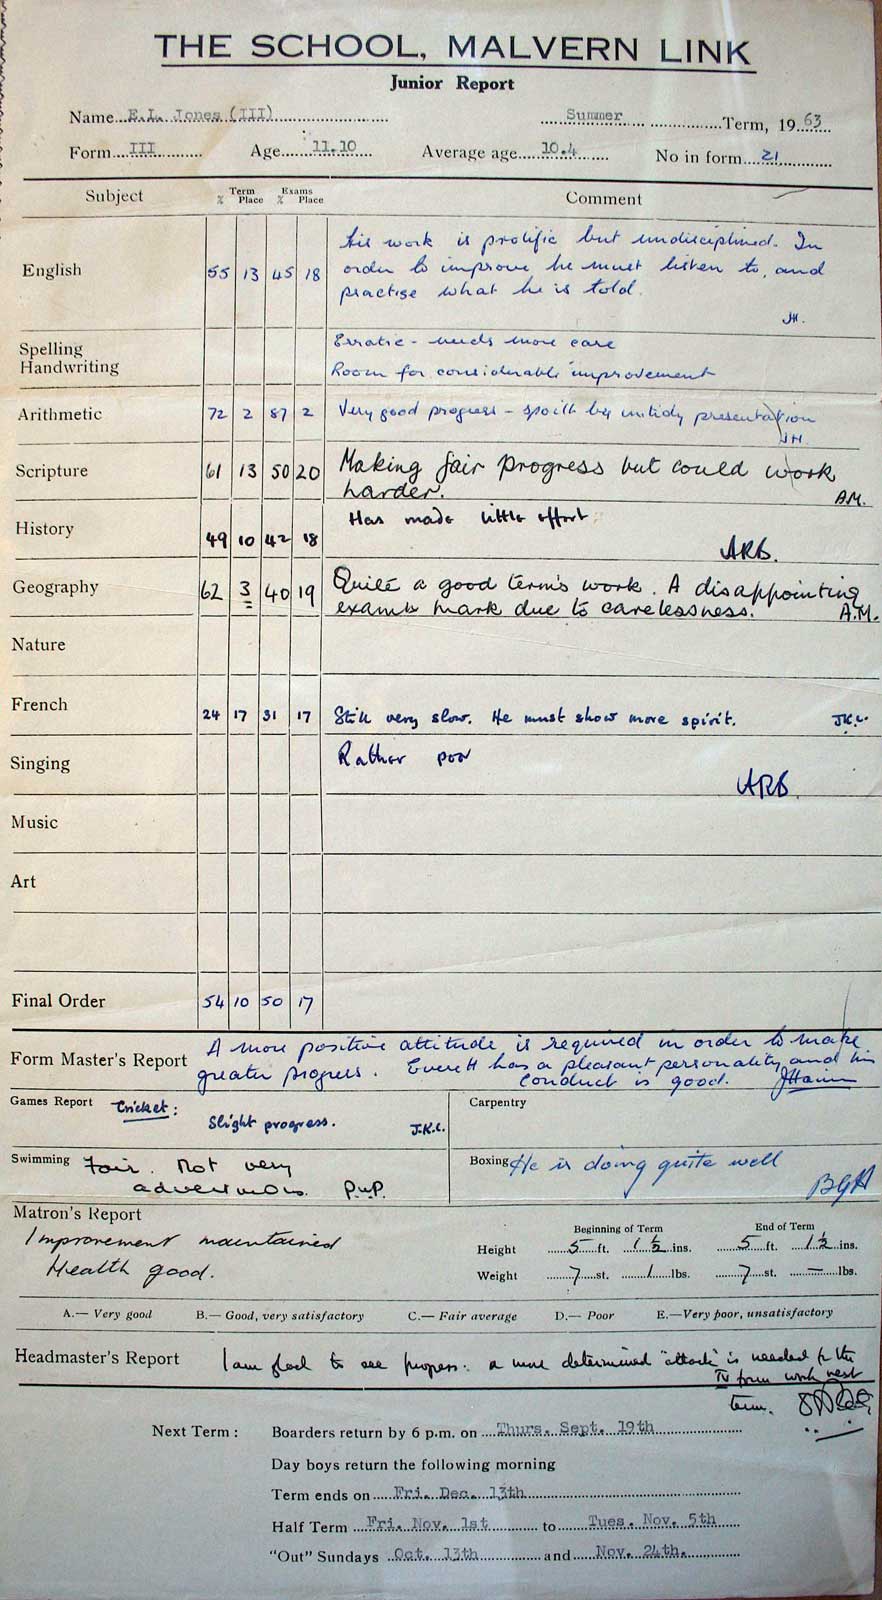 THE SCHOOL, MALVERN LINK
Junior Report
Name E.L. Jones (III) Summer Term, 1963
Form III Age 11.10 Average age 10.4 No in form 21
Subject Term % Place Exams % Place Comment
English 55 13 45 18 His work is prolific but undisciplined. In
order to improve he must listen to, and
practise what he is told.
JH.
Spelling Erratic - needs more care
Handwriting Room for considerable improvement
Arithmetic 72 2 87 2 Very good progress - spoilt by untidy presentation
JH.
Scripture 61 13 50 20 Making fair progress but could work
harder. A.M.
History 49 10 42 18 Has made little effort
ARB.
Geography 62 3 40 19 Quite a good term's work. A disappointing
exam mark due to carelessness. A.M.
Nature
French 24 17 31 17 Still very slow. He must show more spirit. J.K.L.
Singing Rather poor
ARB.
Music
Art
Final Order 54 10 50 17
Form Master's Report A more positive attitude is required in order to make
greater progress. Everett has a pleasant personality and his
conduct is good.
Games Report Cricket: Slight progress. J.K.L.
Carpentry
Swimming Fair. Not very
adventurous. P.W.P.
Boxing He is doing quite well
BGH
Matron's Report
Improvement maintained
Health good.
Beginning of Term End of Term
Height 5 ft. 1½ ins. 5 ft. 1½ ins.
Weight 7 st. 1 lbs. 7 st. – lbs.
A.— Very good B.— Good, very satisfactory C.— Fair average D.— Poor E.—Very poor, unsatisfactory
Headmaster's Report I am glad to see progress: a more determined "attack" is needed for the
IV form work next
term.
Next Term: Boarders return by 6 p.m. on Thurs. Sept. 19th
Day boys return the following morning
Term ends on Fri. Dec. 13th
Half Term Fri. Nov. 1st to Tues. Nov. 5th
"Out" Sundays Oct. 13th and Nov. 24th.